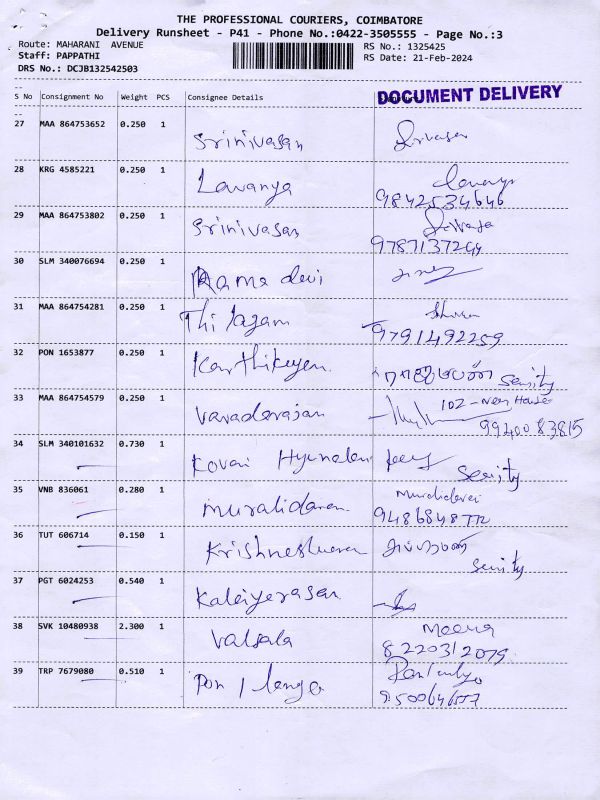 THE PROFESSIONAL COURIERS, COIMBATORE
Delivery Runsheet - P41 - Phone No.:0422-3505555 - Page No.:3
Route: MAHARANI AVENUE RS No.: 1325425
Staff: PAPPATHI RS Date: 21-Feb-2024
DRS No.: DCJB132542503
S No Consignment No Weight PCS Consignee Details
DOCUMENT DELIVERY
27 MAA 864753652 0.250 1 Srinivasan
28 KRG 4585221 0.250 1 Lavanya
9842534646
29 MAA 864753802 0.250 1 Srinivasan
30 SLM 340076694 0.250 1 Rama devi
31 MAA 864754281 0.250 1 Thilagam
9791492259
32 PON 1653877 0.250 1 Karthikeyen
33 MAA 864754579 0.250 1 Varaderajan
9940083815
34 SLM 340101632 0.730 1 Kovai Hyundai
35 VNB 836061 0.280 1 Muralidaran
36 TUT 606714 0.150 1 Krishneshwaran
37 PGT 6024253 0.540 1 Kaleiyerasan
38 SVK 10480938 2.300 1 Valsala Meena
8220312079
39 TRP 7679080 0.510 1